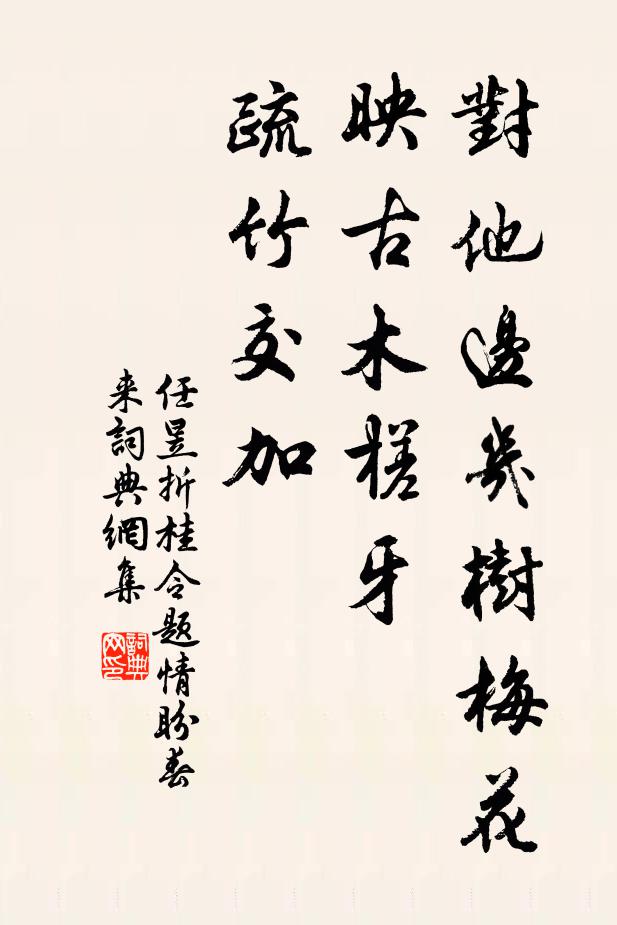 對他邊幾樹梅花
映古木槎牙
疏竹交加
任昱折桂令题情盼春
来詞典網集
詞典
网印